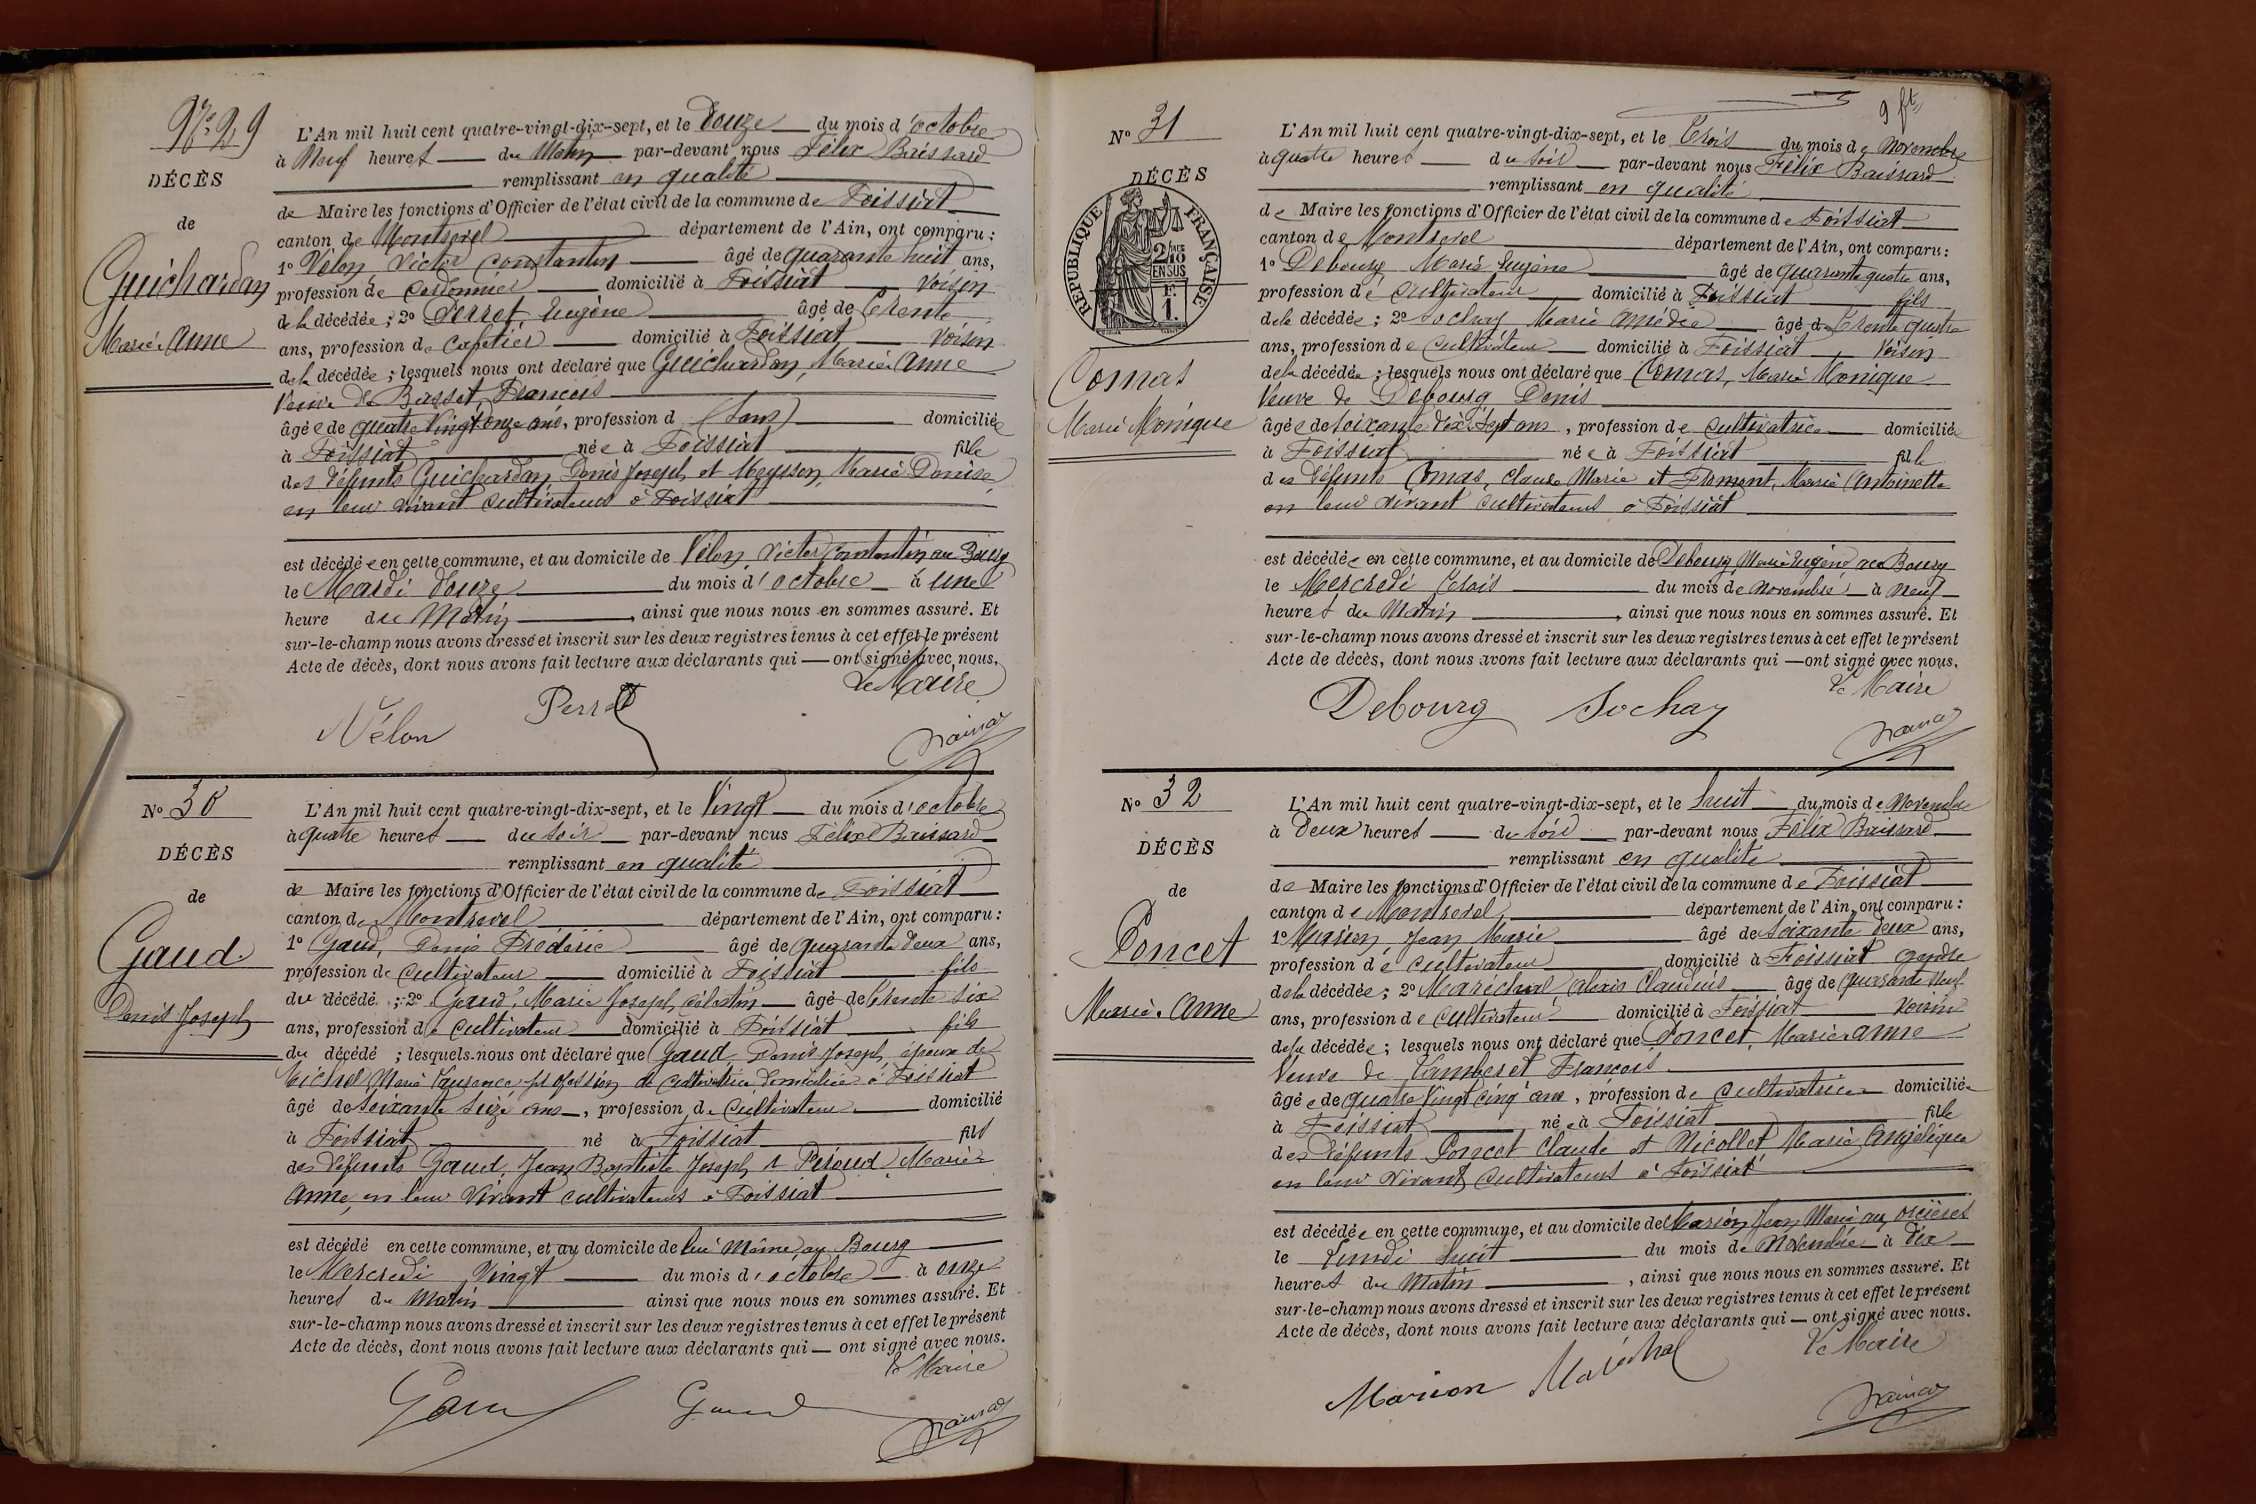 N° 29
DÉCÈS
de
Guichardan
Marie Anne
L'An mil huit cent quatre-vingt-dix-sept, et le Douze du mois d'octobre
à Neuf heures du Matin par-devant nous Félix Baissard
remplissant en qualité
de Maire les fonctions d'Officier de l'état civil de la commune de Foissiat
canton de Montrevel département de l'Ain, ont comparu :
1° Vélon Victor Constantin âgé de quarante huit ans,
profession de Cordonnier domicilié à Foissiat Voisin
de la décédée ; 2° Perret Eugène âgé de Trente
ans, profession de Cafetier domicilié à Foissiat Voisin
de la décédée ; lesquels nous ont déclaré que Guichardan, Marie Anne
Veuve de Basset, François
âgée de quatre Vingt onze ans, profession d (Sans) domiciliée
à Foissiat née à Foissiat fille
des défunts Guichardan Denis Joseph et Meysson Marie Denise
en leur vivant cultivateurs à Foissiat
est décédée en cette commune, et au domicile de Vélon, Victor Constantin au Bourg
le Mardi Douze du mois d'octobre à une
heure du Matin, ainsi que nous nous en sommes assuré. Et
sur-le-champ nous avons dressé et inscrit sur les deux registres tenus à cet effet le présent
Acte de décès, dont nous avons fait lecture aux déclarants qui — ont signé avec nous.
Le Maire
Vélon Perret
N° 30
DÉCÈS
de
Gaud
Denis Joseph
L'An mil huit cent quatre-vingt-dix-sept, et le Vingt du mois d'octobre
à quatre heures du soir par-devant nous Félix Baissard
remplissant en qualité
de Maire les fonctions d'Officier de l'état civil de la commune de Foissiat
canton de Montrevel département de l'Ain, ont comparu :
1° Gaud, Denis Frédéric âgé de quarante deux ans,
profession de cultivateur domicilié à Foissiat fils
du décédé ; 2° Gaud, Marie Joseph Célestin âgé de Trente six
ans, profession de cultivateur domicilié à Foissiat fils
du décédé ; lesquels nous ont déclaré que Gaud Denis Joseph, époux de
Michel Marie Laurence profession de cultivatrice domiciliée à Foissiat
âgé de soixante seize ans, profession de cultivateur domicilié
à Foissiat né à Foissiat fils
des défunts Gaud, Jean Baptiste Joseph et Piroud Marie
Anne, en leur Vivant cultivateurs à Foissiat
est décédé en cette commune, et au domicile de lui même au Bourg
le Mercredi Vingt du mois d'octobre à onze
heures du Matin ainsi que nous nous en sommes assuré. Et
sur-le-champ nous avons dressé et inscrit sur les deux registres tenus à cet effet le présent
Acte de décès, dont nous avons fait lecture aux déclarants qui — ont signé avec nous.
Le Maire
Gaud Gaud
9 ft
N° 31
DÉCÈS
RÉPUBLIQUE FRANÇAISE
2/10 EN SUS
1 F.
Comas
Marie Monique
L'An mil huit cent quatre-vingt-dix-sept, et le Trois du mois de Novembre
à quatre heures du soir par-devant nous Félix Baissard
remplissant en qualité
de Maire les fonctions d'Officier de l'état civil de la commune de Foissiat
canton de Montrevel département de l'Ain, ont comparu :
1° Debourg Marie Eugène âgé de quarante quatre ans,
profession de cultivateur domicilié à Foissiat fils
de la décédée ; 2° Sochay Marie Amédée âgé de Trente quatre
ans, profession de cultivateur domicilié à Foissiat Voisin
de la décédée ; lesquels nous ont déclaré que Comas, Marie Monique
Veuve de Debourg Denis
âgée de soixante dix sept ans, profession de cultivatrice domiciliée
à Foissiat née à Foissiat fille
des défunts Comas, Claude Marie et Froment, Marie Antoinette
en leur vivant cultivateurs à Foissiat
est décédée en cette commune, et au domicile de Debourg Marie Eugène au Bourg
le Mercredi Trois du mois de Novembre à neuf
heures du Matin, ainsi que nous nous en sommes assuré. Et
sur-le-champ nous avons dressé et inscrit sur les deux registres tenus à cet effet le présent
Acte de décès, dont nous avons fait lecture aux déclarants qui — ont signé avec nous.
Le Maire
Debourg Sochay
N° 32
DÉCÈS
de
Poncet
Marie Anne
L'An mil huit cent quatre-vingt-dix-sept, et le huit du mois de Novembre
à Deux heures du soir par-devant nous Félix Baissard
remplissant en qualité
de Maire les fonctions d'Officier de l'état civil de la commune de Foissiat
canton de Montrevel département de l'Ain, ont comparu :
1° Marion Jean Marie âgé de soixante deux ans,
profession de cultivateur domicilié à Foissiat gendre
de la décédée ; 2° Maréchal Alexis Claudius âgé de quarante neuf
ans, profession de cultivateur domicilié à Foissiat voisin
de la décédée ; lesquels nous ont déclaré que Poncet, Marie Anne
Veuve de Vamberet François
âgée de quatre Vingt cinq ans, profession de cultivatrice domiciliée
à Foissiat née à Foissiat fille
des défunts Poncet Claude et Nicollet Marie Angélique
en leur vivant cultivateurs à Foissiat
est décédée en cette commune, et au domicile de Marion, Jean Marie aux
le Lundi huit du mois de Novembre à dix
heures du Matin, ainsi que nous nous en sommes assuré. Et
sur-le-champ nous avons dressé et inscrit sur les deux registres tenus à cet effet le présent
Acte de décès, dont nous avons fait lecture aux déclarants qui — ont signé avec nous.
Le Maire
Marion Maréchal